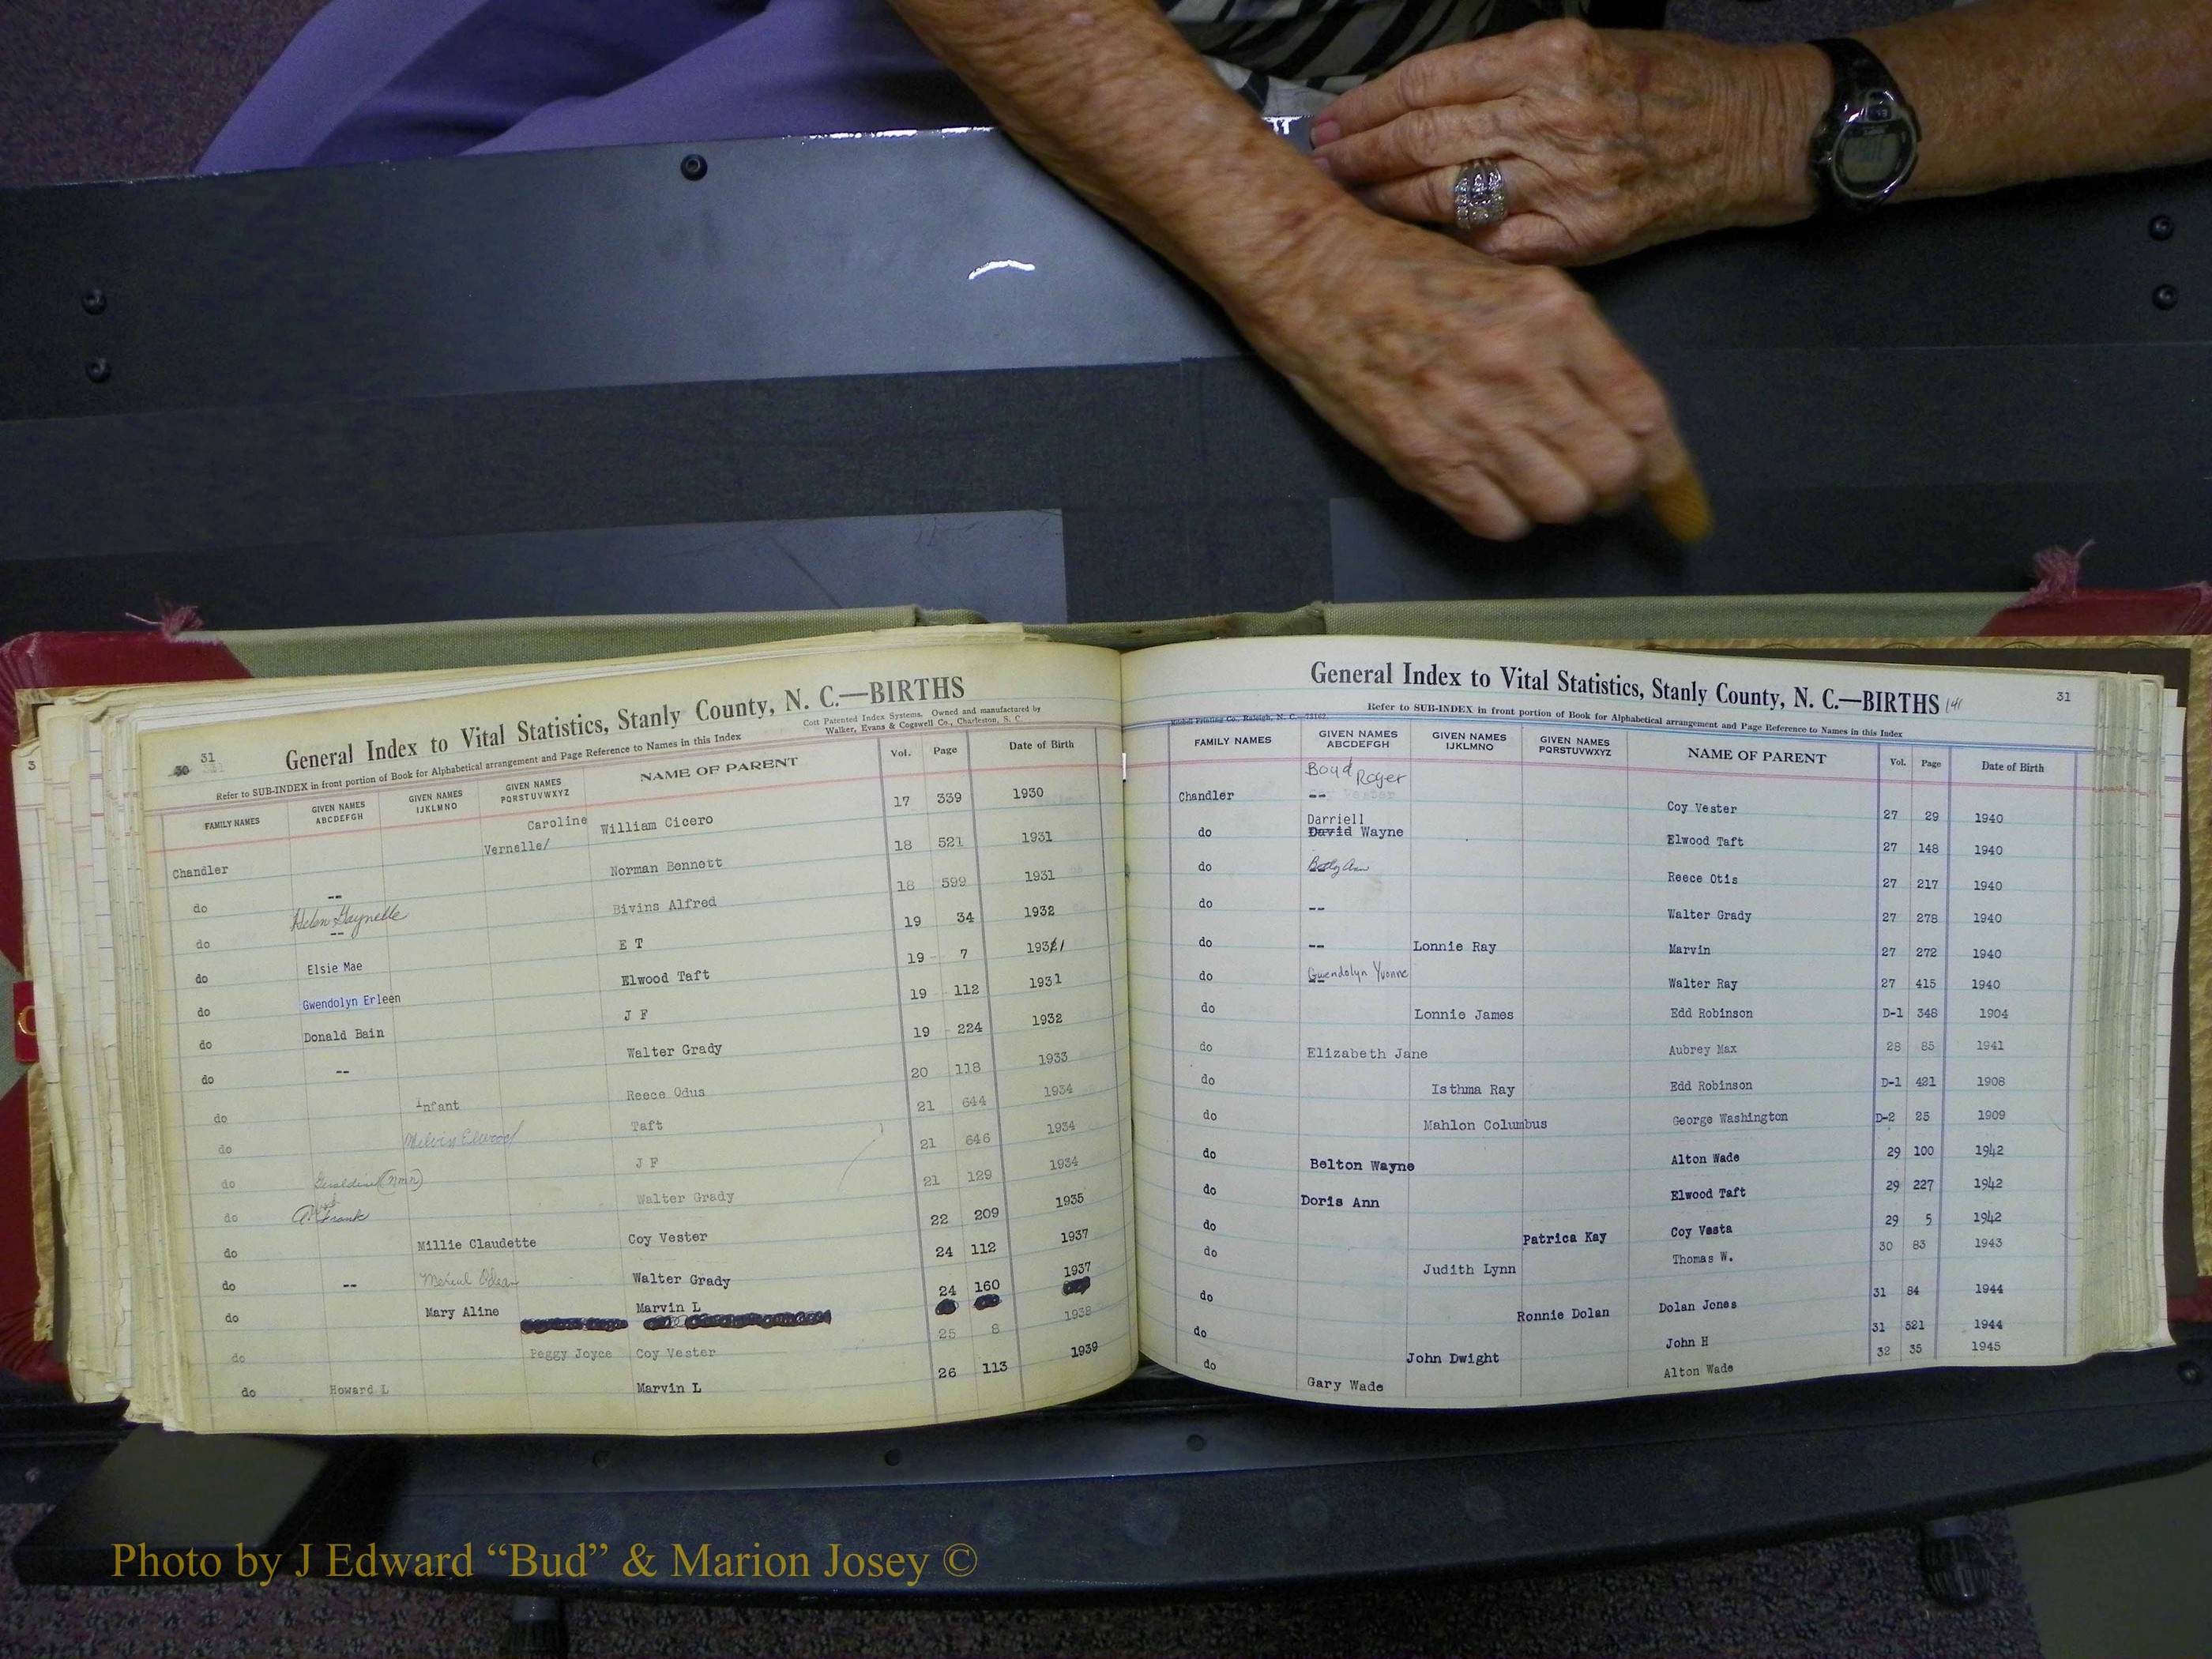 31
30
General Index to Vital Statistics, Stanly County, N. C.—BIRTHS
Refer to SUB-INDEX in front portion of Book for Alphabetical arrangement and Page Reference to Names in this Index
Cott Patented Index Systems. Owned and manufactured by
Walker, Evans & Cogswell Co., Charleston, S. C.
FAMILY NAMES GIVEN NAMES ABCDEFGH GIVEN NAMES IJKLMNO GIVEN NAMES PQRSTUVWXYZ NAME OF PARENT Vol. Page Date of Birth
Caroline
Chandler Vernelle/ William Cicero 17 339 1930
do -- Norman Bennett 18 521 1931
Helen Gaynelle
do -- Bivins Alfred 18 599 1931
do Elsie Mae E T 19 34 1932
do Gwendolyn Erleen Elwood Taft 19 7 1931
do Donald Bain J F 19 112 1931
do -- Walter Grady 19 224 1932
do Infant Reece Odus 20 118 1933
do Melvin Elwood Taft 21 644 1934
do Geraldine (nmn) J F 21 646 1934
do Frank Walter Grady 21 129 1934
do Millie Claudette Coy Vester 22 209 1935
do -- Walter Grady 24 112 1937
do Mary Aline Marvin L 24 160 1937
do Peggy Joyce Coy Vester 25 8 1938
do Howard L Marvin L 26 113 1939
General Index to Vital Statistics, Stanly County, N. C.—BIRTHS
31
Refer to SUB-INDEX in front portion of Book for Alphabetical arrangement and Page Reference to Names in this Index
FAMILY NAMES GIVEN NAMES ABCDEFGH GIVEN NAMES IJKLMNO GIVEN NAMES PQRSTUVWXYZ NAME OF PARENT Vol. Page Date of Birth
Boyd Roger
Chandler -- Coy Vester 27 29 1940
Darriell
do David Wayne Elwood Taft 27 148 1940
do Betty Ann Reece Otis 27 217 1940
do -- Walter Grady 27 278 1940
do -- Lonnie Ray Marvin 27 272 1940
do Gwendolyn Yvonne Walter Ray 27 415 1940
do Lonnie James Edd Robinson D-1 348 1904
do Elizabeth Jane Aubrey Max 28 85 1941
do Isthma Ray Edd Robinson D-1 421 1908
do Mahlon Columbus George Washington D-2 25 1909
do Belton Wayne Alton Wade 29 100 1942
do Doris Ann Elwood Taft 29 227 1942
do Patrica Kay Coy Vesta 29 5 1942
do Judith Lynn Thomas W. 30 83 1943
do Ronnie Dolan Dolan Jones 31 84 1944
do John Dwight John H 31 521 1944
do Gary Wade Alton Wade 32 35 1945
Photo by J Edward “Bud” & Marion Josey ©